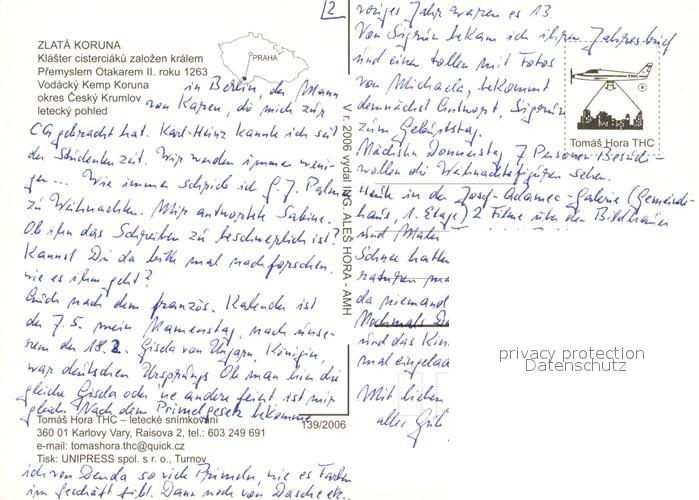 2
ZLATÁ KORUNA
Klášter cisterciáků založen králem
Přemyslem Otakarem II. roku 1263
Vodácký Kemp Koruna
okres Český Krumlov
letecký pohled
PRAHA
in Berlin, der Mann
von Karen, die mich zur
CG gebracht hat. Karl-Heinz kannte ich seit
der Studentenzeit. Wir werden immer weni-
ger... Wie immer schrieb ich G. J. Palm
zu Weihnachten. Mir antwortete Sabine.
Ob ihm das Schreiben zu beschwerlich ist?
Kannst Du da bitte mal nachforschen,
wie es ihm geht?
Auch nach dem französ. Kalender ist
der 7.5. mein Namenstag, nach unse-
rem der 18.2. Gisela von Ungarn, Königin,
war deutschen Ursprungs. Ob man hier die
gleiche Gisela oder ne andere feiert, ist mir
gleich. Nach dem Primelgesetz bekomme
Tomáš Hora THC – letecké snímkování
360 01 Karlovy Vary, Raisova 2, tel.: 603 249 691
e-mail: tomashora.thc@quick.cz
Tisk: UNIPRESS spol. s r. o., Turnov
ich von Denda so viele Primeln, wie es Farben
im Geschäft gibt. Dann noch von
139/2006
V r. 2006 vydal ING. ALEŠ HORA - AMH
voriges Jahr waren es 13
Von Sigrun bekam ich ihren Jahresbrief
und einen tollen mit Fotos
von Michaela, bekommt
demnächst Antwort, Sigrun
zum Geburtstag.
Tomáš Hora THC
Nächsten Donnerstag 7 Personen Besuch-
wollen die Weihnachtsfiguren sehen.
in der Josef-Adamec-Galerie (Gemeinde-
haus, 1. Etage) 2 Filme über den Bildhauer
und Maler
Schnee hatten
da niemand
Nochmals
und das
mal eingela
Mit lieben
alles Gut
privacy protection
Datenschutz